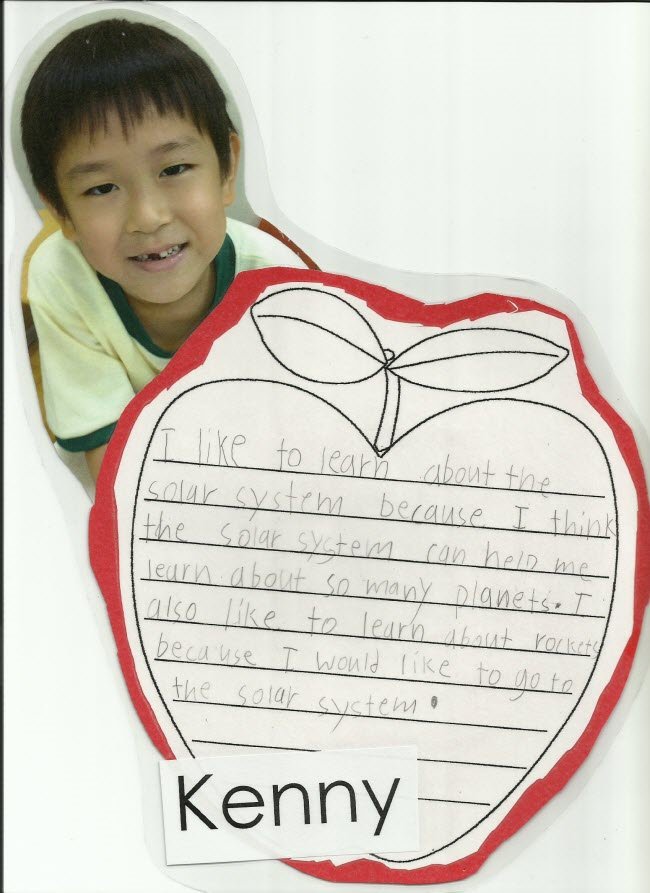 I like to learn about the
solar system because I think
the solar system can help me
learn about so many planets. I
also like to learn about rockets
because I would like to go to
the solar system.
Kenny